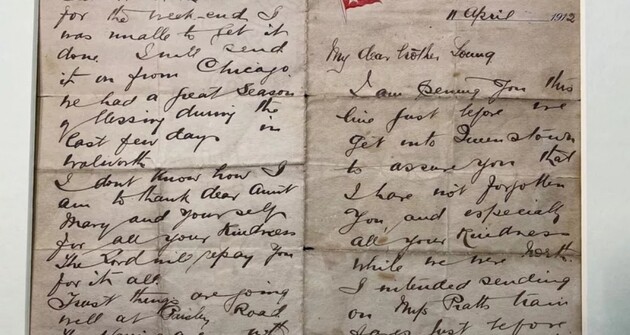 11 April 1912
My dear brother Young
I am penning you this
line just before we
get into Queenstown
to assure you that
I have not forgotten
you, and especially
all your kindness
while we were North.
I intended sending
on Miss Pratts train
fares just before
for the week-end I
was unable to get it
done. I will send
it on from Chicago.
We had a great season
of blessing during the
last few days in
Walworth
I dont know how I
am to thank dear Aunt
Mary and yourself
for all your kindness
The Lord will repay you
for it all.
Trust things are going
well at Paisley Road